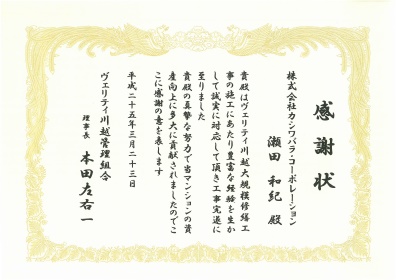 感謝状
株式会社カシワバラ・コーポレーション
瀬田和紀殿
貴殿はヴェリテイ川越大規模修繕工
事の施工にあたり豊富な経験を生か
して誠実に対応して頂き工事完遂に
至りました
貴殿の真摯な努力で当マンションの資
産向上に多大に貢献されましたのでこ
こに感謝の意を表します
平成二十五年三月二十三日
ヴェリテイ川越管理組合
理事長 本田左右一